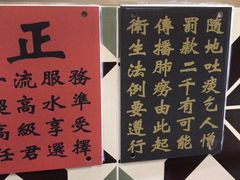 正
一流服務
高水準
高級享受
任君選擇
隨地吐痰乞人憎
罰款二千有可能
傳播肺癆由此起
衛生法例要遵行